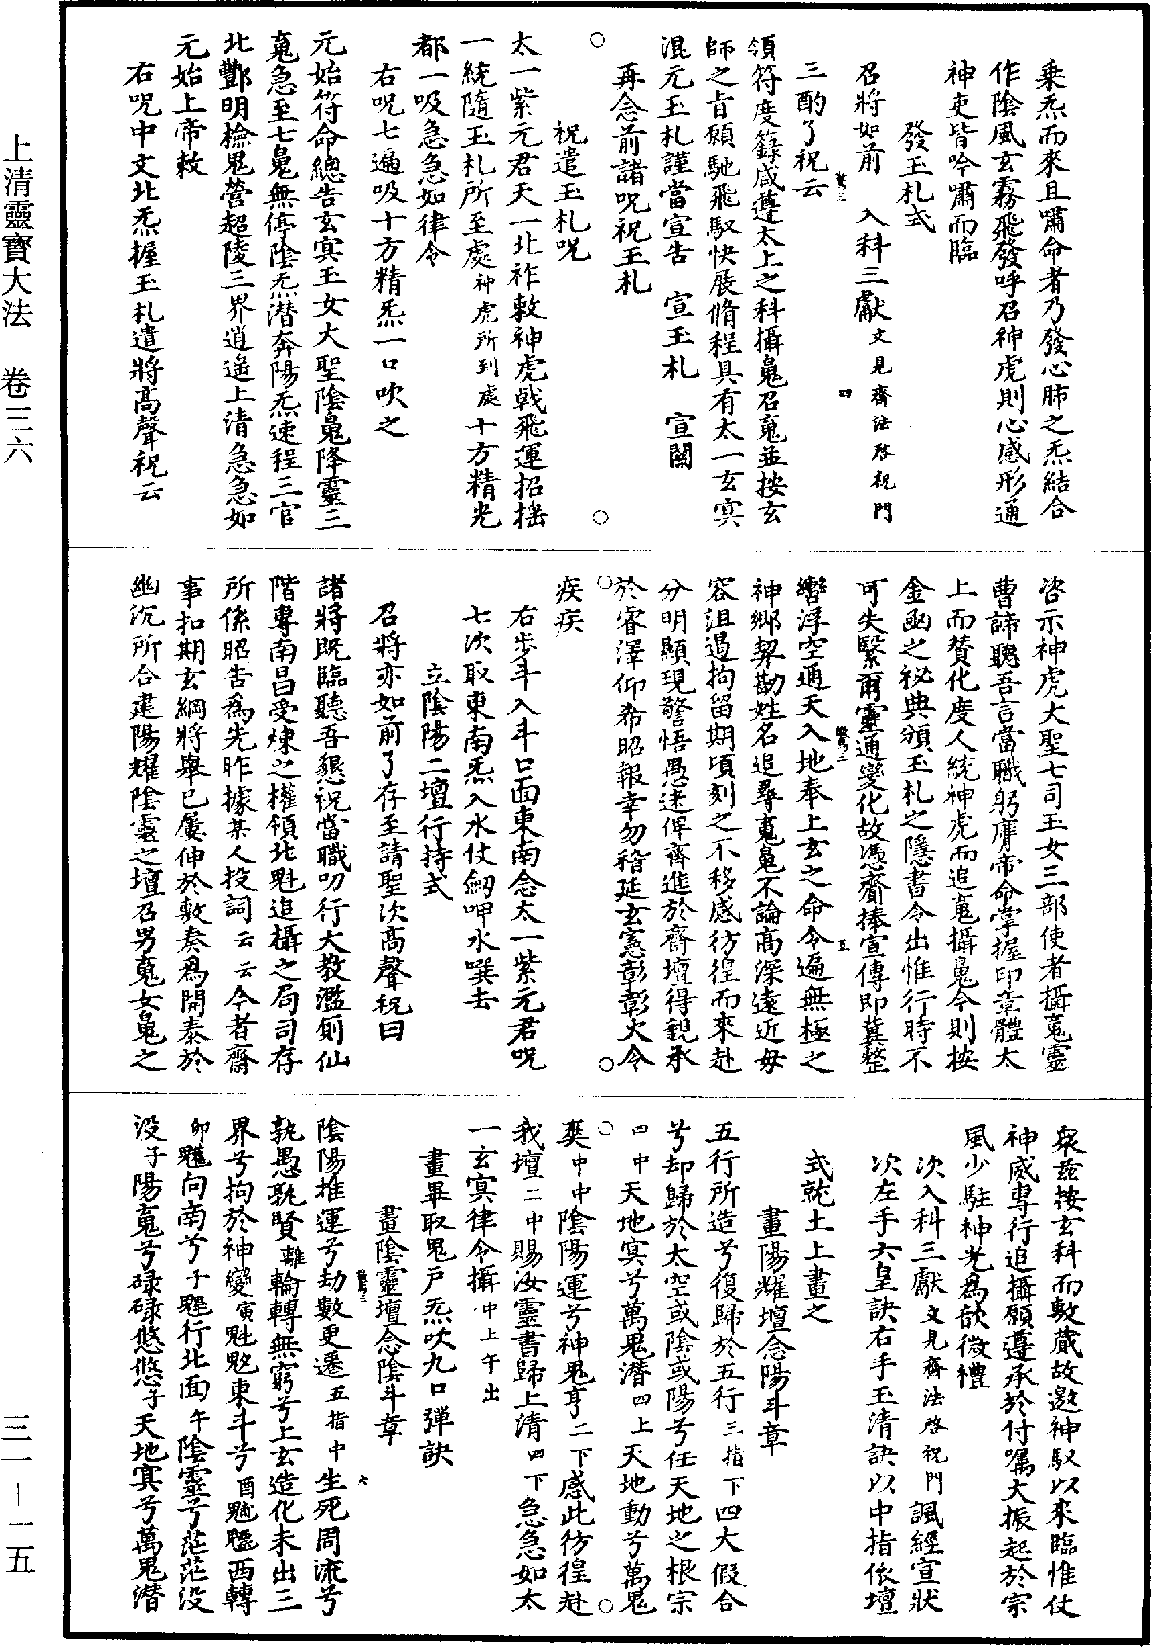 上清靈寶大法　卷三六
三一－一五
乘炁而來且嘯命者乃發心肺之炁結合
作陰風玄霧飛發呼召神虎則心感形通
神吏皆吟嘯而臨
發玉札式
召將如前　入科三獻文見齋法啓祝門
三酌了祝云
領符度籙咸遵太上之科攝䰟召䰟並按玄
師之旨願馳飛馭快展脩程具有太一玄冥
混元玉札謹當宣告　宣玉札　宣闋
再念前諸呪祝玉札
祝遣玉札呪
太一紫元君天一北祚敕神虎戟飛運招搖
一統隨玉札所至處神虎所到處十方精光
都一吸急急如律令
右呪七遍吸十方精炁一口吹之
元始符命總告玄冥玉女大聖陰䰟降靈三
䰟急至七䰟無停陰炁潛奔陽炁速程三官
北酆明檢鬼營超陵三界逍遙上清急急如
元始上帝敕
右呪中文北炁握玉札遣將高聲祝云
咨示神虎大聖七司玉女三部使者攝䰟靈
曹諦聽吾言當職躬膺帝命掌握印章體太
上而贊化度人統神虎而追䰟攝䰟今則按
金函之祕典頒玉札之隱書令出惟行時不
可失繄爾靈通變化故憑齎捧宣傳即冀整
轡浮空通天入地奉上玄之命令遍無極之
神鄉契勘姓名追尋䰟䰟不論高深遠近毋
容沮遏拘留期頃刻之不移感彷徨而來赴
分明顯現警悟愚迷俾齊進於齋壇得親承
於睿澤仰希昭報幸勿稽延玄憲彰彰火令
疾疾
右步斗入斗口面東南念太一紫元君呪
七次取東南炁入水仗劒呷水噀去
立陰陽二壇行持式
召將亦如前了存至請聖次高聲祝曰
諸將既臨聽吾懇祝當職叨行大教濫厠仙
階專南昌受煉之權領北魁追攝之局司存
所係昭告為先昨據某人投詞云云今者齋
事扣期玄綱將舉已屢伸於敷奏為開泰於
幽沉所合建陽耀陰靈之壇召男䰟女䰟之
眾茲按玄科而敷蕆故邀神馭以來臨惟仗
神威專行追攝願遵承於付囑大振起於宗
風少駐神光為歆微禮
次入科三獻文見齋法啓祝門諷經宣狀
次左手六皇訣右手玉清訣以中指依壇
式就土上畫之
畫陽耀壇念陽斗章
五行所造兮復歸於五行三指下四大假合
兮却歸於太空或陰或陽兮任天地之根宗
四中天地冥兮萬鬼潛四上天地動兮萬鬼
奠中中陰陽運兮神鬼亨二下感此彷徨赴
我壇二中賜汝靈書歸上清四下急急如太
一玄冥律令攝中上午出
畫畢取鬼戶炁吹九口彈訣
畫陰靈壇念陰斗章
陰陽推運兮劫數更遷五指中生死周流兮
孰愚孰賢離輪轉無窮兮上玄造化未出三
界兮拘於神變寅魁䰢東斗兮酉魓䰡西轉
卯魒向南兮子魓行北面午陰靈兮茫茫没
没子陽䰟兮碌碌悠悠子天地冥兮萬鬼潛